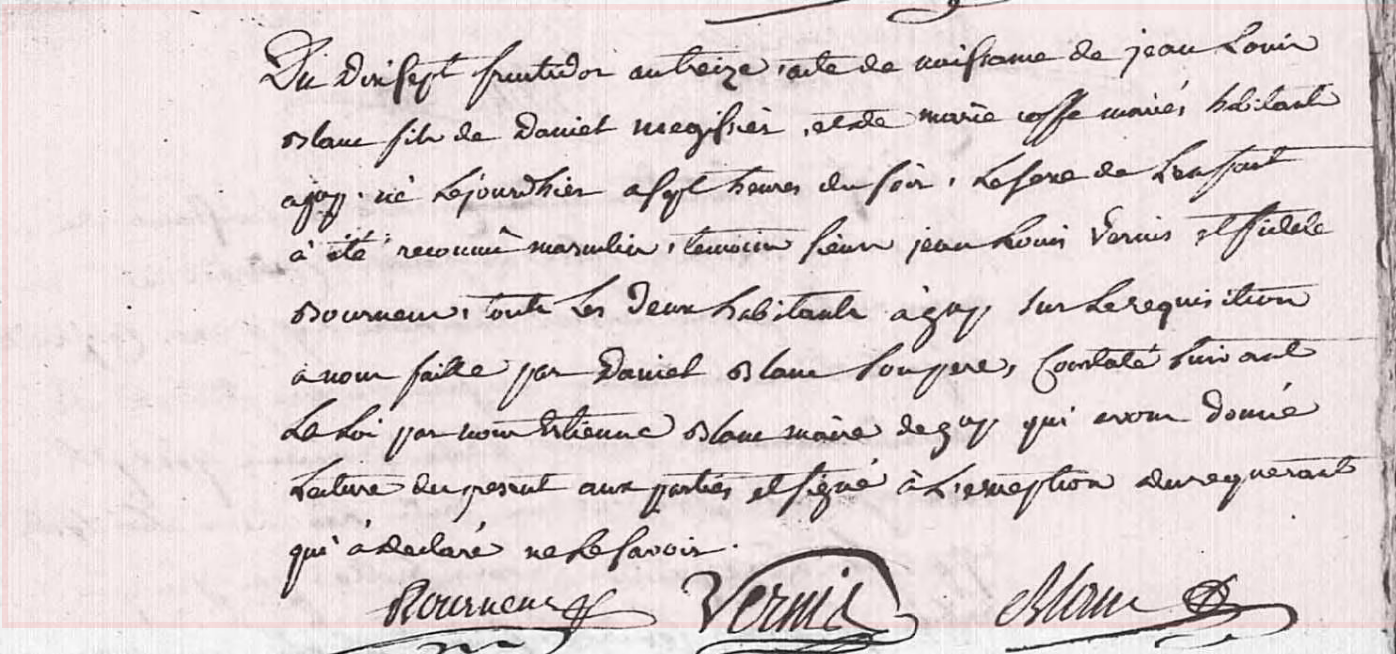 Du dixsept fructidor an treize, acte de naissance de jean Louis
Blanc fils de Daniel megissier, et de marie coffe mariés habitants
a gap. né le jourdhier a sept heures du soir, le sexe de Lenfant
à été reconnû masculin, temoins sieurs jean Louis Vernis et fidele
Bourneux, touts Les deux habitants à gap sur Le requisition
a nous faitte par Daniel Blanc Son pere, Constaté Suivant
La Loi par nous Estienne Blanc maire de gap qui avons donné
Lecture du present aux parties et signé à L'exseption du requerant
qui à declaré ne Le savoir.
Bourneux Vernis Blanc